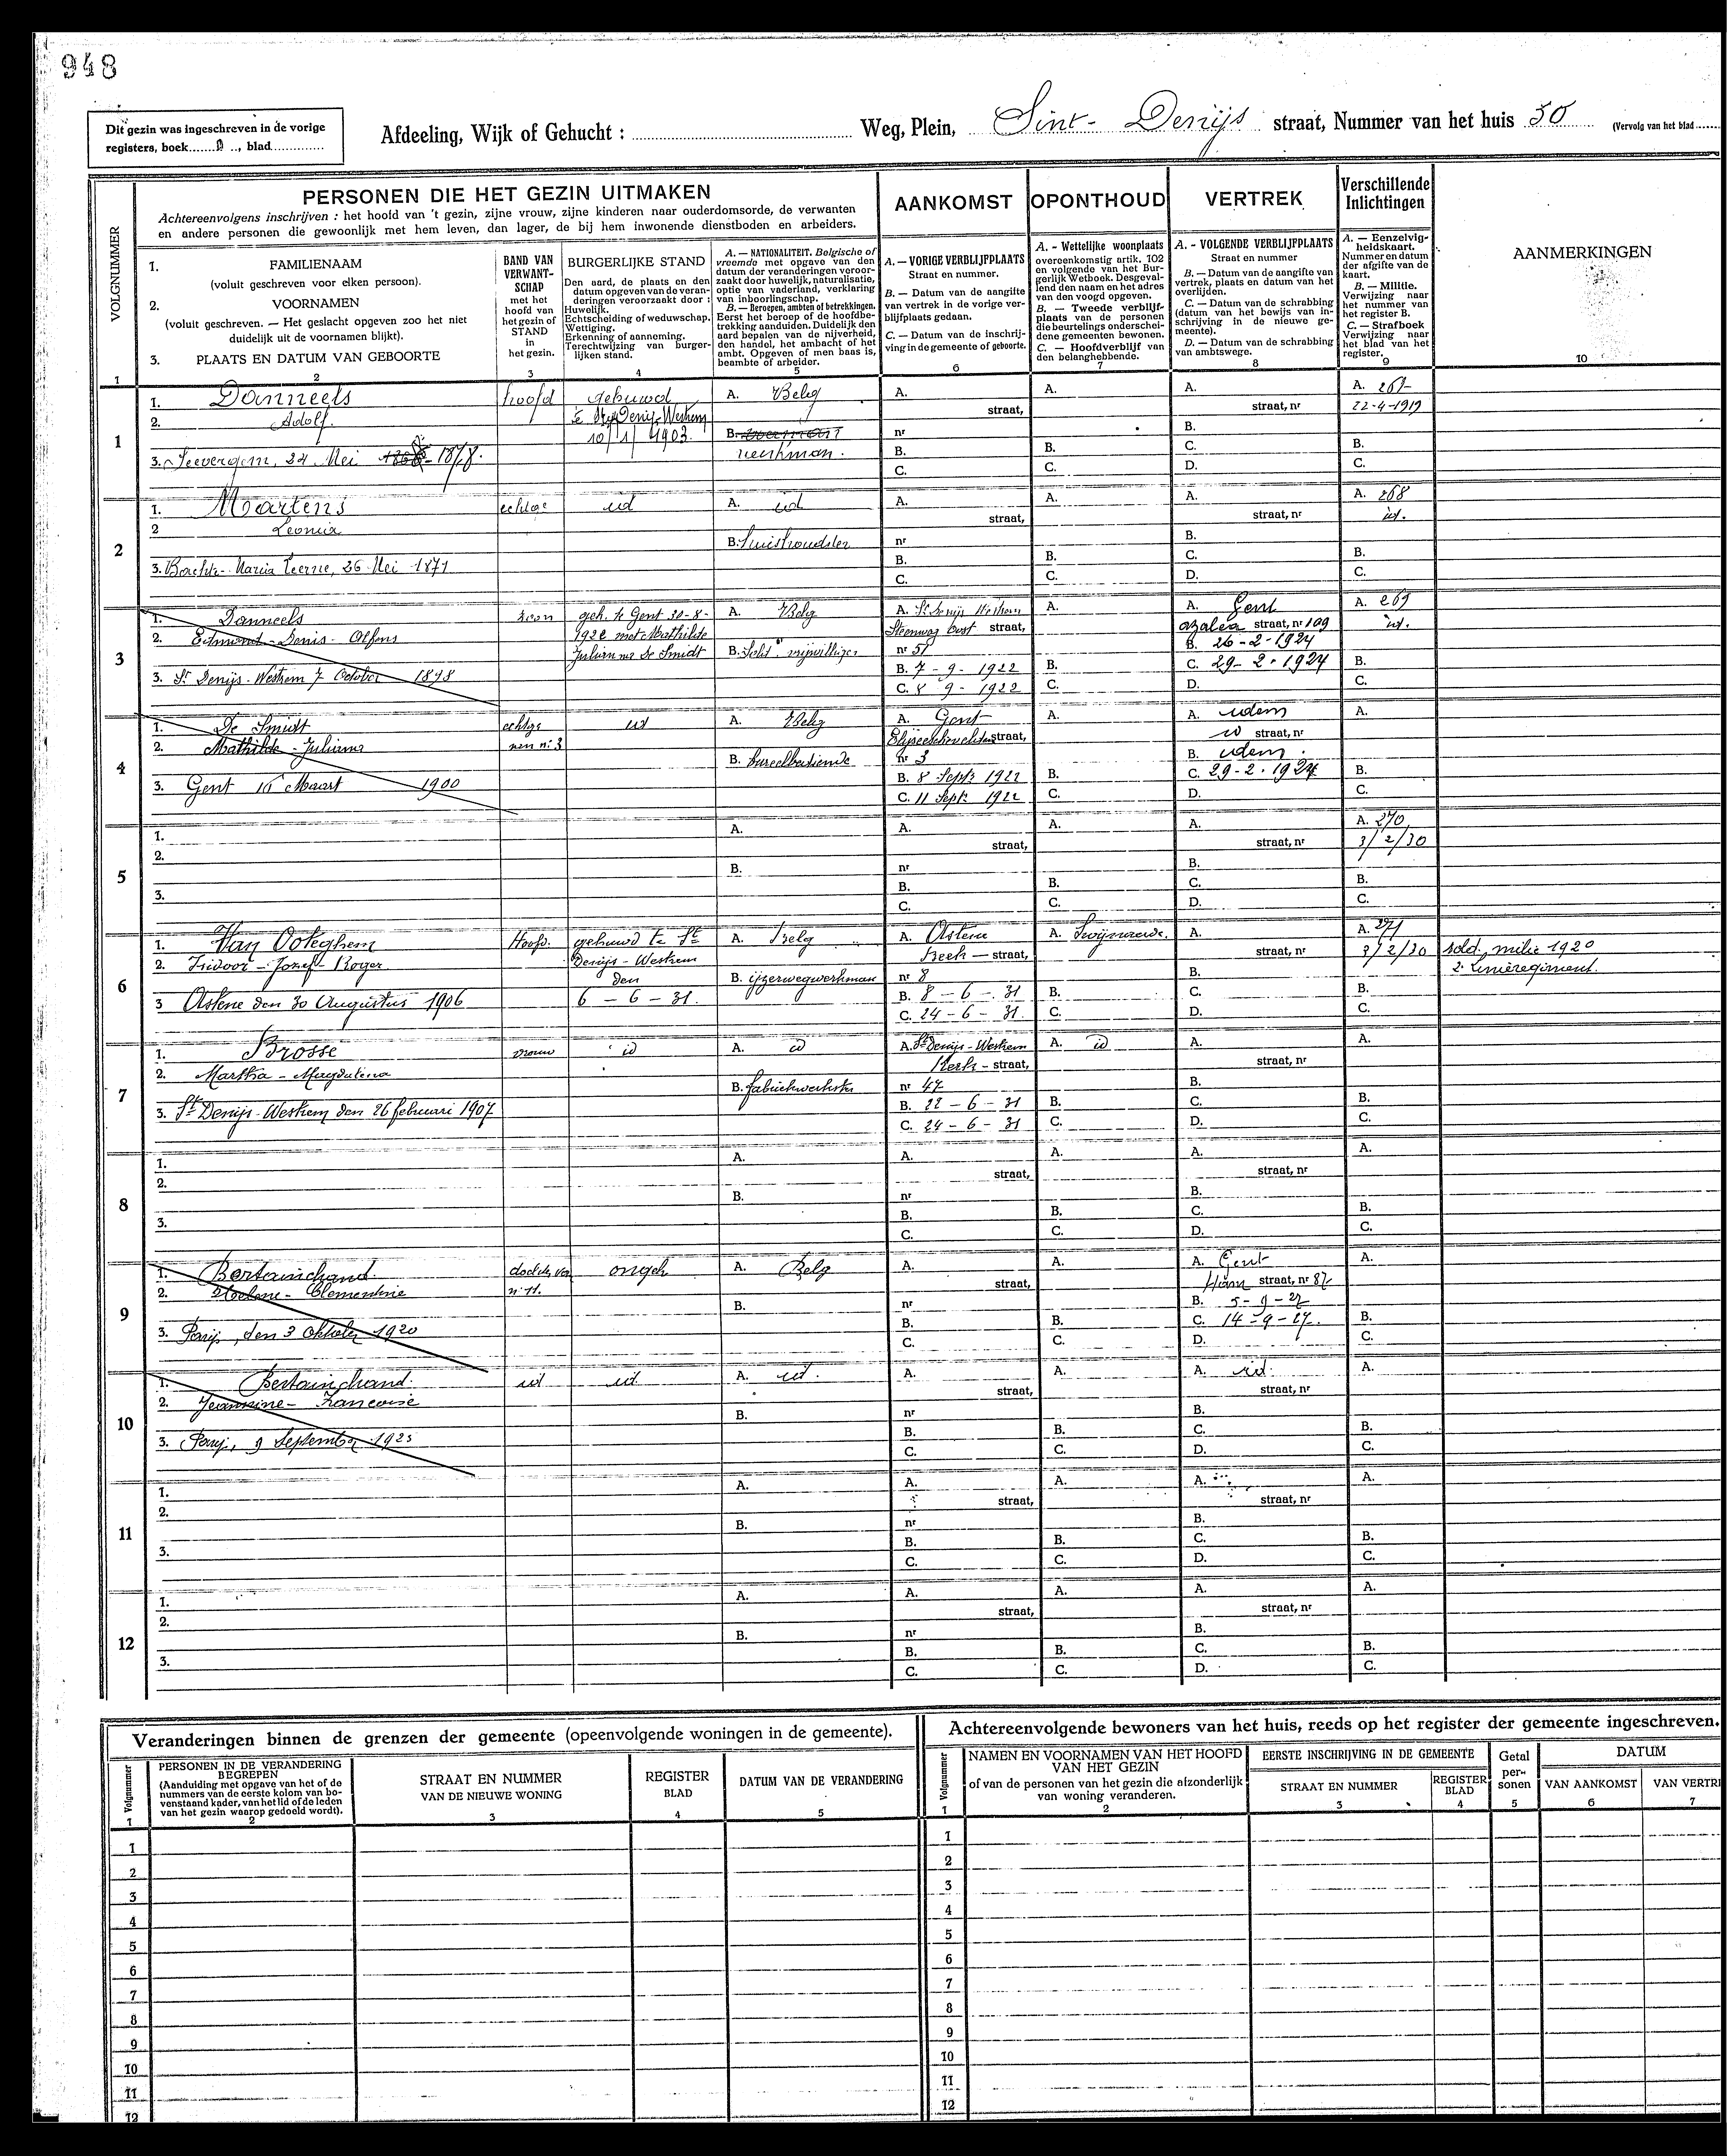 948
Dit gezin was ingeschreven in de vorige
registers, boek........, blad.............
Afdeeling, Wijk of Gehucht : ........ Weg, Plein, Sint- Denijs straat, Nummer van het huis 50 (Vervolg van het blad ......
VOLGNUMMER
PERSONEN DIE HET GEZIN UITMAKEN
Achtereenvolgens inschrijven : het hoofd van 't gezin, zijne vrouw, zijne kinderen naar ouderdomsorde, de verwanten
en andere personen die gewoonlijk met hem leven, dan lager, de bij hem inwonende dienstboden en arbeiders.
AANKOMST
OPONTHOUD
VERTREK
Verschillende
Inlichtingen
AANMERKINGEN
1. FAMILIENAAM
(voluit geschreven voor elken persoon).
2. VOORNAMEN
(voluit geschreven. — Het geslacht opgeven zoo het niet
duidelijk uit de voornamen blijkt).
3. PLAATS EN DATUM VAN GEBOORTE
BAND VAN
VERWANT-
SCHAP
met het
hoofd van
het gezin of
STAND
in
het gezin.
BURGERLIJKE STAND
Den aard, de plaats en den
datum opgeven van de veran-
deringen veroorzaakt door :
Huwelijk.
Echtscheiding of weduwschap.
Wettiging.
Erkenning of aanneming.
Terechtwijzing van burger-
lijken stand.
A. — NATIONALITEIT. Belgische of
vreemde met opgave van den
datum der veranderingen veroor-
zaakt door huwelijk, naturalisatie,
optie van vaderland, verklaring
van inboorlingschap.
B. — Beroepen, ambten of betrekkingen.
Eerst het beroep of de hoofdbe-
trekking aanduiden. Duidelijk den
aard bepalen van de nijverheid,
den handel, het ambacht of het
ambt. Opgeven of men baas is,
beambte of arbeider.
A. — VORIGE VERBLIJFPLAATS
Straat en nummer.
B. — Datum van de aangifte
van vertrek in de vorige ver-
blijfplaats gedaan.
C. — Datum van de inschrij-
ving in de gemeente of geboorte.
A. - Wettelijke woonplaats
overeenkomstig artik. 102
en volgende van het Bur-
gerlijk Wetboek. Desgeval-
lend den naam en het adres
van den voogd opgeven.
B. — Tweede verblijf-
plaats van de personen
die beurtelings onderschei-
dene gemeenten bewonen.
C. — Hoofdverblijf van
den belanghebbende.
A. - VOLGENDE VERBLIJFPLAATS
Straat en nummer
B. — Datum van de aangifte van
vertrek, plaats en datum van het
overlijden.
C. — Datum van de schrabbing
(datum van het bewijs van in-
schrijving in de nieuwe ge-
meente).
D. — Datum van de schrabbing
van ambtswege.
A. — Eenzelvig-
heidskaart.
Nummer en datum
der afgifte van de
kaart.
B. — Militie.
Verwijzing naar
het nummer van
het register B.
C. — Strafboek
Verwijzing naar
het blad van het
register.
1 2 3 4 5 6 7 8 9 10
1
1. Danneels hoofd gehuwd A. Belg A. straat, A. A. straat, nr A. 267
2. Adolf. te St Denijs Westrem 22-4-1919
10/1/1903. B. werkman. nr B.
3. Seevergem, 24 Mei 1878. B. C. B. C. C. D. B. C.
2
1. Martens echtge id A. id A. straat, A. A. straat, nr A. 268
2 Leonia id.
B. Huishoudster nr B.
3. Bachte-Maria Leerne, 26 Mei 1871 B. C. B. C. C. D. B. C.
3
1. Danneels zoon geh. te Gent 30-8- A. Belg A. St Denijs Westrem A. A. Gent A. 269
2. Edmond-Denis-Alfons 1922 met Mathilde Steenweg Oost straat, azalea straat, nr 109 id.
Juliana De Smidt B. Sold. vrijwilliger nr 51 B. 26-2-1924
3. St Denijs-Westrem 7 October 1898 B. 7-9-1922 B. C. 29-2-1924 B.
C. 8 9-1922 C. D. C.
4
1. De Smidt echtge id A. Belg A. Gent A. A. idem A.
2. Mathilde-Juliana van n: 3 straat, id straat, nr
B. bureelbediende nr 3 B. idem.
3. Gent 16 Maart 1900 B. 8 Sept: 1922 B. C. 29-2-1924 B.
C. 11 Sept: 1922 C. D. C.
5
1. A. A. straat, A. A. straat, nr A. 270
2. 3/2/30
B. nr B.
3. B. C. B. C. C. D. B. C.
6
1. Van Ooteghem Hoofd. gehuwd te St A. Belg A. Astene A. Swijnaerde. A. A. 271
2. Isidoor-Jozef-Roger Denijs-Westrem Beek — straat, straat, nr 3/2/30 sold. milic 1920
den B. ijzerwegwerkman nr 8 B. 2e Linieregiment.
3 Astene den 30 Augustus 1906 6-6-31. B. 8-6-31 B. C. B.
C. 24-6-31. C. D. C.
7
1. Brosse vrouw id A. id A. St Denijs-Westrem A. id A. A.
2. Martha-Magdalena Kerk - straat, straat, nr
B. fabriekwerkster nr 47 B.
3. St Denijs-Westrem den 26 februari 1907 B. 22-6-31 B. C. B.
C. 24-6-31 C. D. C.
8
1. A. A. straat, A. A. straat, nr A.
2.
B. nr B.
3. B. C. B. C. C. D. B. C.
9
1. Bertainchand dochter van ongeh A. Belg A. A. A. Gent A.
2. Clementine n: 11. straat, straat, nr 87
B. nr B. 5-9-27
3. Parijs, den 3 Oktober 1920 B. B. C. 14-9-27. B.
C. C. D. C.
10
1. Bertainchand. id id. A. id. A. A. A. id. A.
2. Jeannine-Francoise straat, straat, nr
B. nr B.
3. Parijs, 9 September 1925 B. C. B. C. C. D. B. C.
11
1. A. A. straat, A. A. straat, nr A.
2.
B. nr B.
3. B. C. B. C. C. D. B. C.
12
1. A. A. straat, A. A. straat, nr A.
2.
B. nr B.
3. B. C. B. C. C. D. B. C.
Veranderingen binnen de grenzen der gemeente (opeenvolgende woningen in de gemeente).
Volgnummer
PERSONEN IN DE VERANDERING
BEGREPEN
(Aanduiding met opgave van het of de
nummers van de eerste kolom van bo-
venstaand kader, van het lid of de leden
van het gezin waarop gedoeld wordt).
STRAAT EN NUMMER
VAN DE NIEUWE WONING
REGISTER
BLAD
DATUM VAN DE VERANDERING
1 2 3 4 5
1
2
3
4
5
6
7
8
9
10
11
12
Achtereenvolgende bewoners van het huis, reeds op het register der gemeente ingeschreven.
Volgnummer
NAMEN EN VOORNAMEN VAN HET HOOFD
VAN HET GEZIN
of van de personen van het gezin die afzonderlijk
van woning veranderen.
EERSTE INSCHRIJVING IN DE GEMEENTE
STRAAT EN NUMMER
REGISTER
BLAD
Getal
per-
sonen
DATUM
VAN AANKOMST
VAN VERTR
1 2 3 4 5 6 7
1
2
3
4
5
6
7
8
9
10
11
12